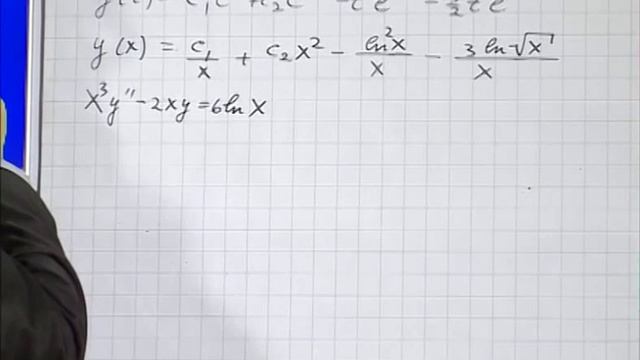 y(x) = c₁/x + c₂x² - ln²x/x - 3 ln√x/x
x³y'' - 2xy = 6 ln x